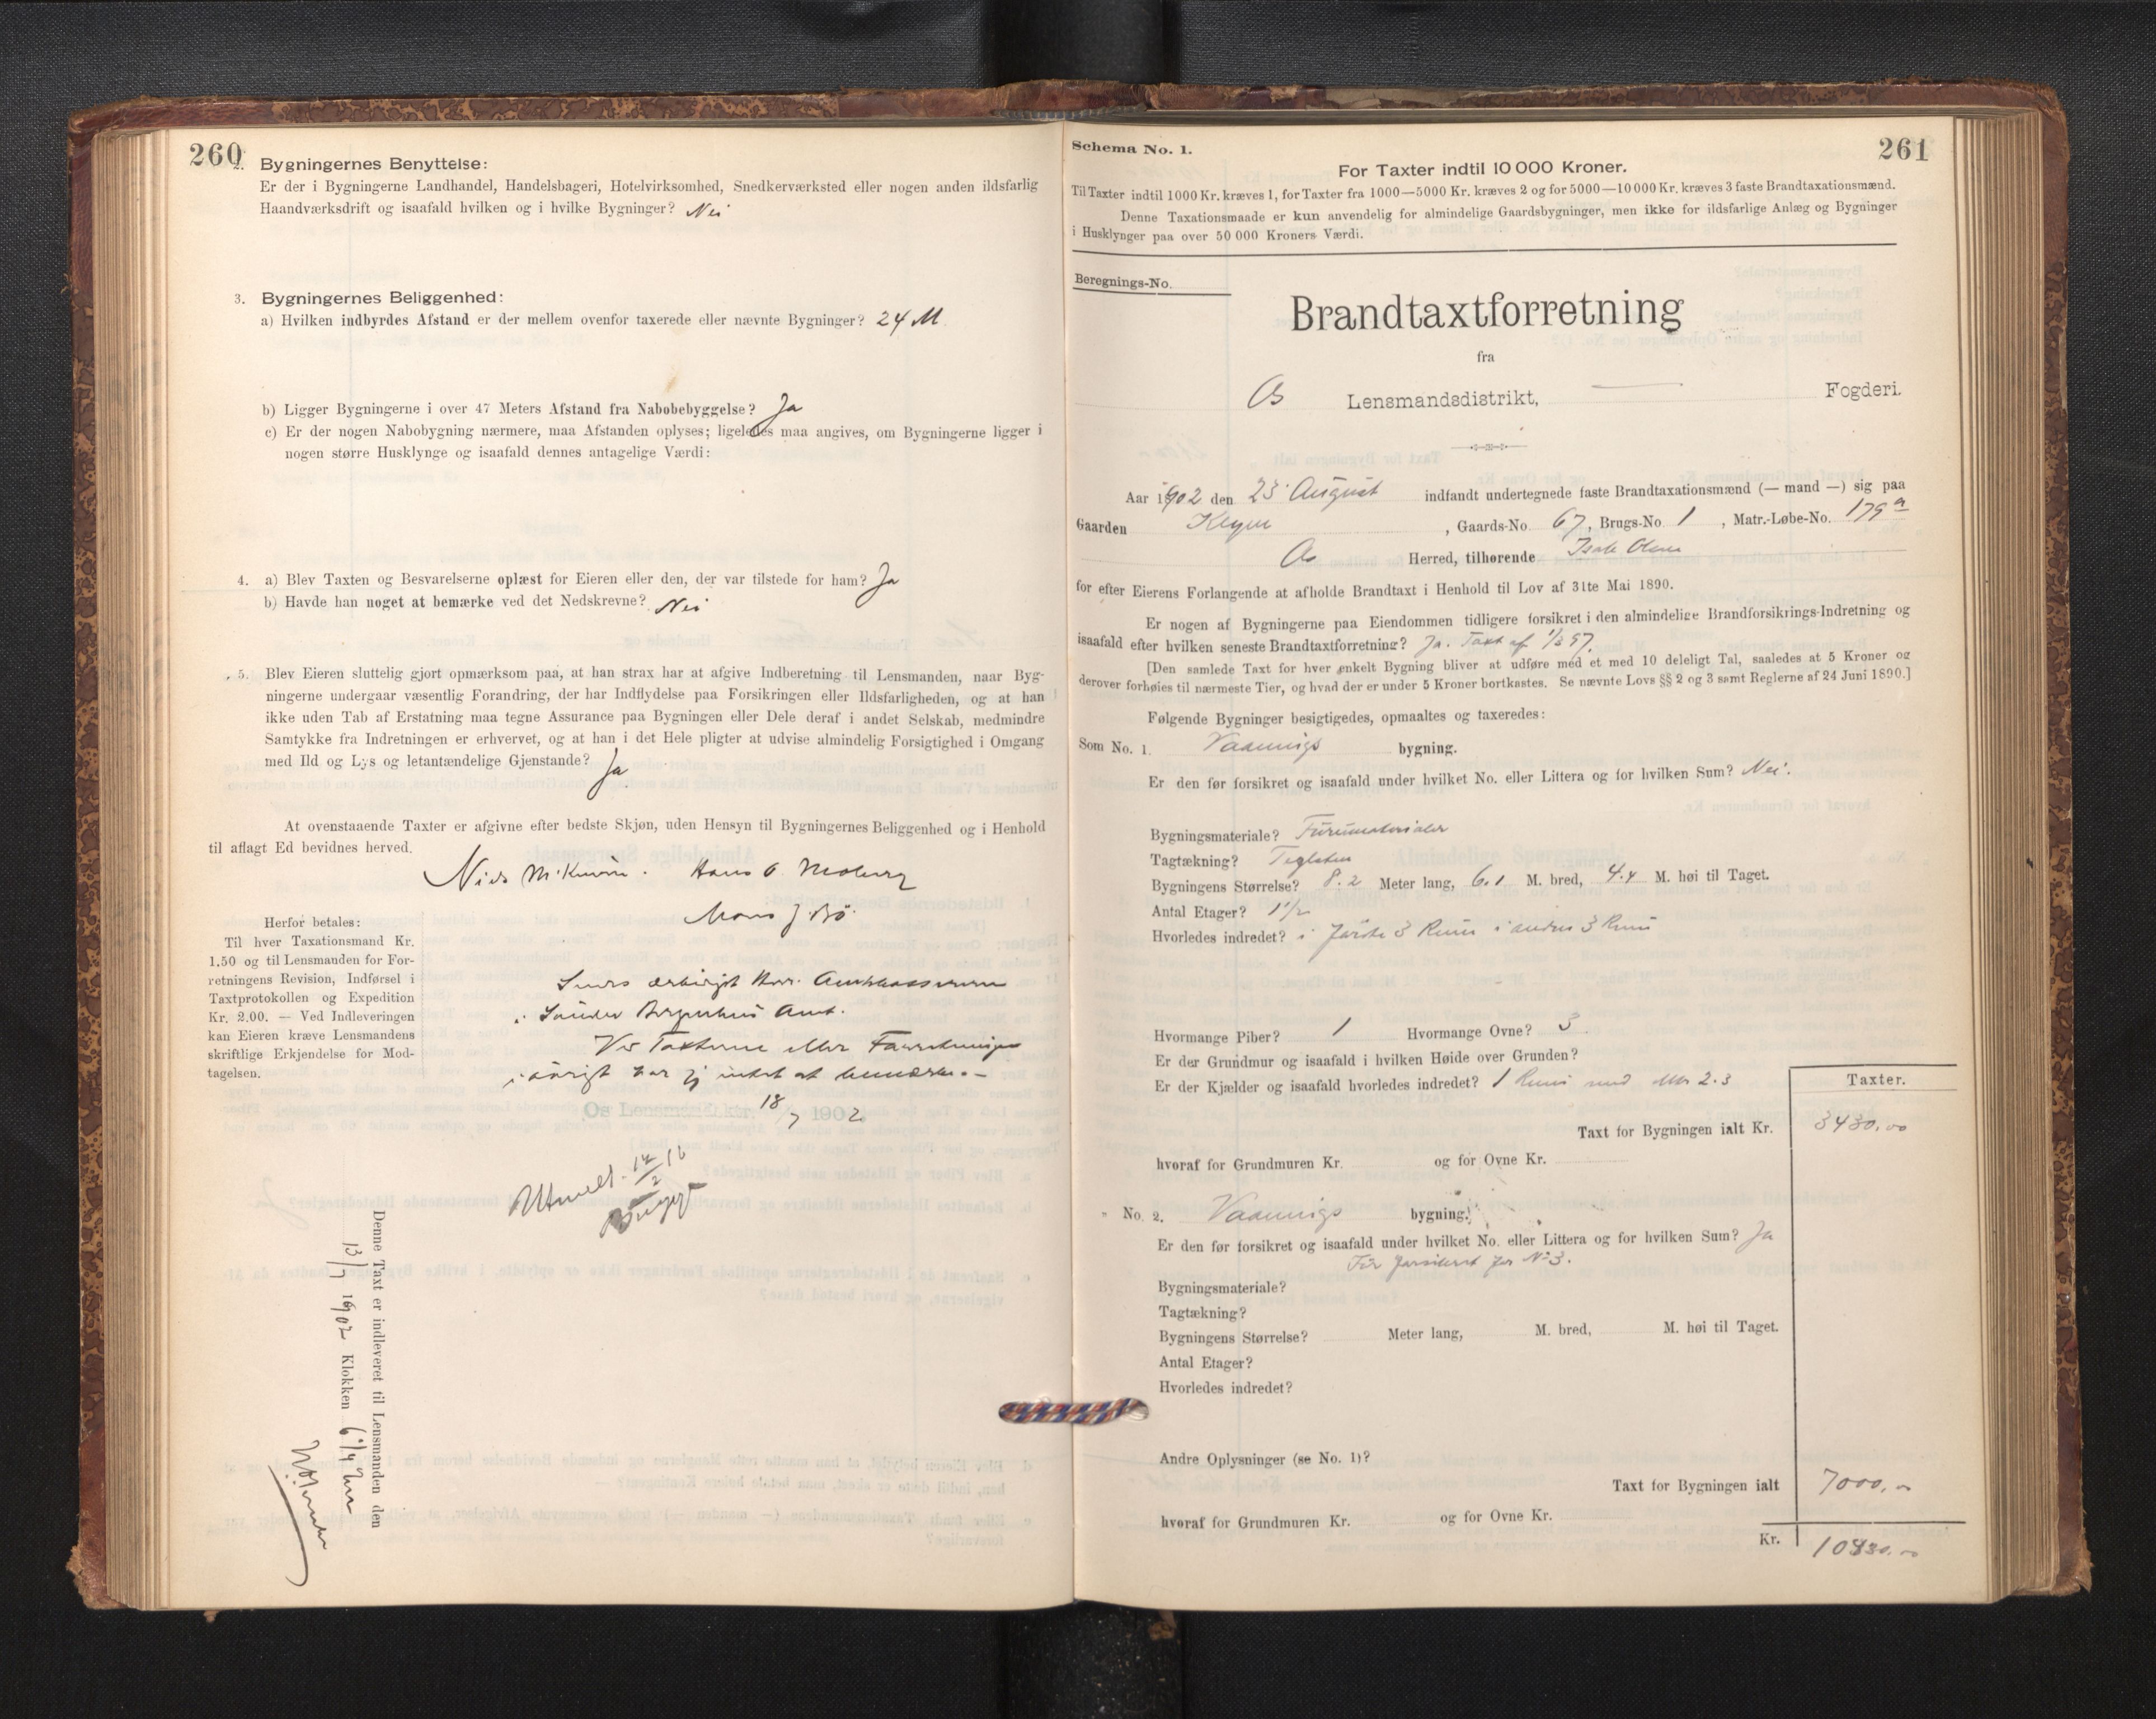 260
2. Bygningernes Benyttelse:
Er der i Bygningerne Landhandel, Handelsbageri, Hotelvirksomhed, Snedkerværksted eller nogen anden ildsfarlig
Haandværksdrift og isaafald hvilken og i hvilke Bygninger? Nei
3. Bygningernes Beliggenhed:
a) Hvilken indbyrdes Afstand er der mellem ovenfor taxerede eller nævnte Bygninger? 24 M
b) Ligger Bygningerne i over 47 Meters Afstand fra Nabobebyggelse? Ja
c) Er der nogen Nabobygning nærmere, maa Afstanden oplyses; ligeledes maa angives, om Bygningerne ligger i
nogen større Husklynge og isaafald dennes antagelige Værdi:
4. a) Blev Taxten og Besvarelserne oplæst for Eieren eller den, der var tilstede for ham? Ja
b) Havde han noget at bemærke ved det Nedskrevne? Nei
5. Blev Eieren sluttelig gjort opmærksom paa, at han strax har at afgive Indberetning til Lensmanden, naar Byg-
ningerne undergaar væsentlig Forandring, der har Indflydelse paa Forsikringen eller Ildsfarligheden, og at han
ikke uden Tab af Erstatning maa tegne Assurance paa Bygningen eller Dele deraf i andet Selskab, medmindre
Samtykke fra Indretningen er erhvervet, og at han i det Hele pligter at udvise almindelig Forsigtighed i Omgang
med Ild og Lys og letantændelige Gjenstande? Ja
At ovenstaaende Taxter er afgivne efter bedste Skjøn, uden Hensyn til Bygningernes Beliggenhed og i Henhold
til aflagt Ed bevidnes herved.
Niels Hans O Moberg
Mons J. Bø
Herfor betales:
Til hver Taxationsmand Kr.
1.50 og til Lensmanden for For-
retningens Revision, Indførsel i
Taxtprotokollen og Expedition
Kr. 2.00. — Ved Indleveringen
kan Eieren kræve Lensmandens
skriftlige Erkjendelse for Mod-
tagelsen.
Sendes ærbødigst Herr Amtskassereren
i Søndre Bergenhus Amt.
Ved Taxterne eller Forretningen
i øvrigt har jeg intet at bemærke. —
Os Lensmandskt. 18/7 1902
Utmeldt 14/2 16
Denne Taxt er indleveret til Lensmanden den
13/7 1902 Klokken 6 1/4
261
Schema No. 1.
For Taxter indtil 10 000 Kroner.
Til Taxter indtil 1000 Kr. kræves 1, for Taxter fra 1000—5000 Kr. kræves 2 og for 5000—10 000 Kr. kræves 3 faste Brandtaxationsmænd.
Denne Taxationsmaade er kun anvendelig for almindelige Gaardsbygninger, men ikke for ildsfarlige Anlæg og Bygninger
i Husklynger paa over 50 000 Kroners Værdi.
Beregnings-No.
Brandtaxtforretning
fra
Os Lensmandsdistrikt, — Fogderi.
Aar 1902 den 23 August indfandt undertegnede faste Brandtaxationsmænd (— mand —) sig paa
Gaarden , Gaards-No. 67, Brugs-No. 1, Matr.-Løbe-No. 179 a
Os Herred, tilhørende Isak Olsen
for efter Eierens Forlangende at afholde Brandtaxt i Henhold til Lov af 31te Mai 1890.
Er nogen af Bygningerne paa Eiendommen tidligere forsikret i den almindelige Brandforsikrings-Indretning og
isaafald efter hvilken seneste Brandtaxtforretning? Ja. Taxt af 97.
[Den samlede Taxt for hver enkelt Bygning bliver at udføre med et med 10 deleligt Tal, saaledes at 5 Kroner og
derover forhøies til nærmeste Tier, og hvad der er under 5 Kroner bortkastes. Se nævnte Lovs §§ 2 og 3 samt Reglerne af 24 Juni 1890.]
Følgende Bygninger besigtigedes, opmaaltes og taxeredes:
Som No. 1. Vaanings bygning.
Er den før forsikret og isaafald under hvilket No. eller Littera og for hvilken Sum? Nei.
Bygningsmateriale? Furumaterialer
Tagtækning? Teglsten
Bygningens Størrelse? 8.2 Meter lang, 6.1 M. bred, 4.4 M. høi til Taget.
Antal Etager? 1 1/2
Hvorledes indredet? i første 3 Rum i anden 3 Rum
Hvormange Piber? 1 Hvormange Ovne? 3
Er der Grundmur og isaafald i hvilken Høide over Grunden?
Er der Kjælder og isaafald hvorledes indredet? 1 Rum 2.3
Taxter.
Taxt for Bygningen ialt Kr. 3430,00
hvoraf for Grundmuren Kr. og for Ovne Kr.
" No. 2. Vaanings bygning.
Er den før forsikret og isaafald under hvilket No. eller Littera og for hvilken Sum? Ja
Før forsikret for No 3.
Bygningsmateriale?
Tagtækning?
Bygningens Størrelse? Meter lang, M. bred, M. høi til Taget.
Antal Etager?
Hvorledes indredet?
Andre Oplysninger (se No. 1)?
Taxt for Bygningen ialt 7000,—
hvoraf for Grundmuren Kr. og for Ovne Kr.
Kr. 10430,—